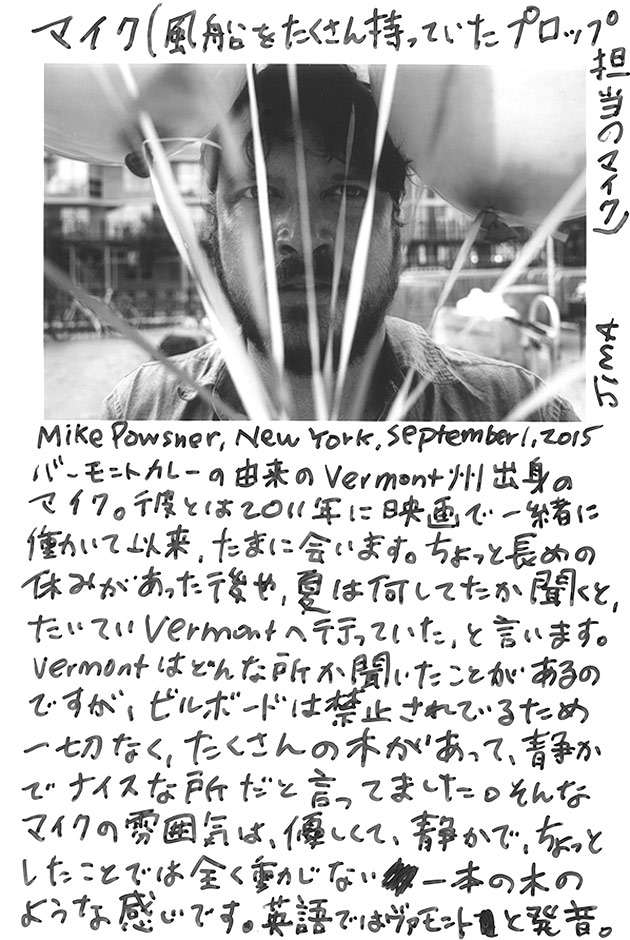 マイク(風船をたくさん持っていたプロップ
担当のマイク)
Jima
Mike Powsner, New York, September 1, 2015
バーモントカレーの由来のVermont州出身の
マイク。彼とは2011年に映画で一緒に
働いて以来,たまに会います。ちょっと長めの
休みがあった後や,夏は何してたか聞くと,
たいていVermontへ行っていた,と言います。
Vermontはどんな所か聞いたことがあるの
ですが、ビルボードは禁止されているため
一切なく,たくさんの木があって、静か
でナイスな所だと言ってました。そんな
マイクの雰囲気は、優しくて、静かで,ちょっと
したことでは全く動じない一本の木の
ような感じです。英語ではヴァモントと発音。